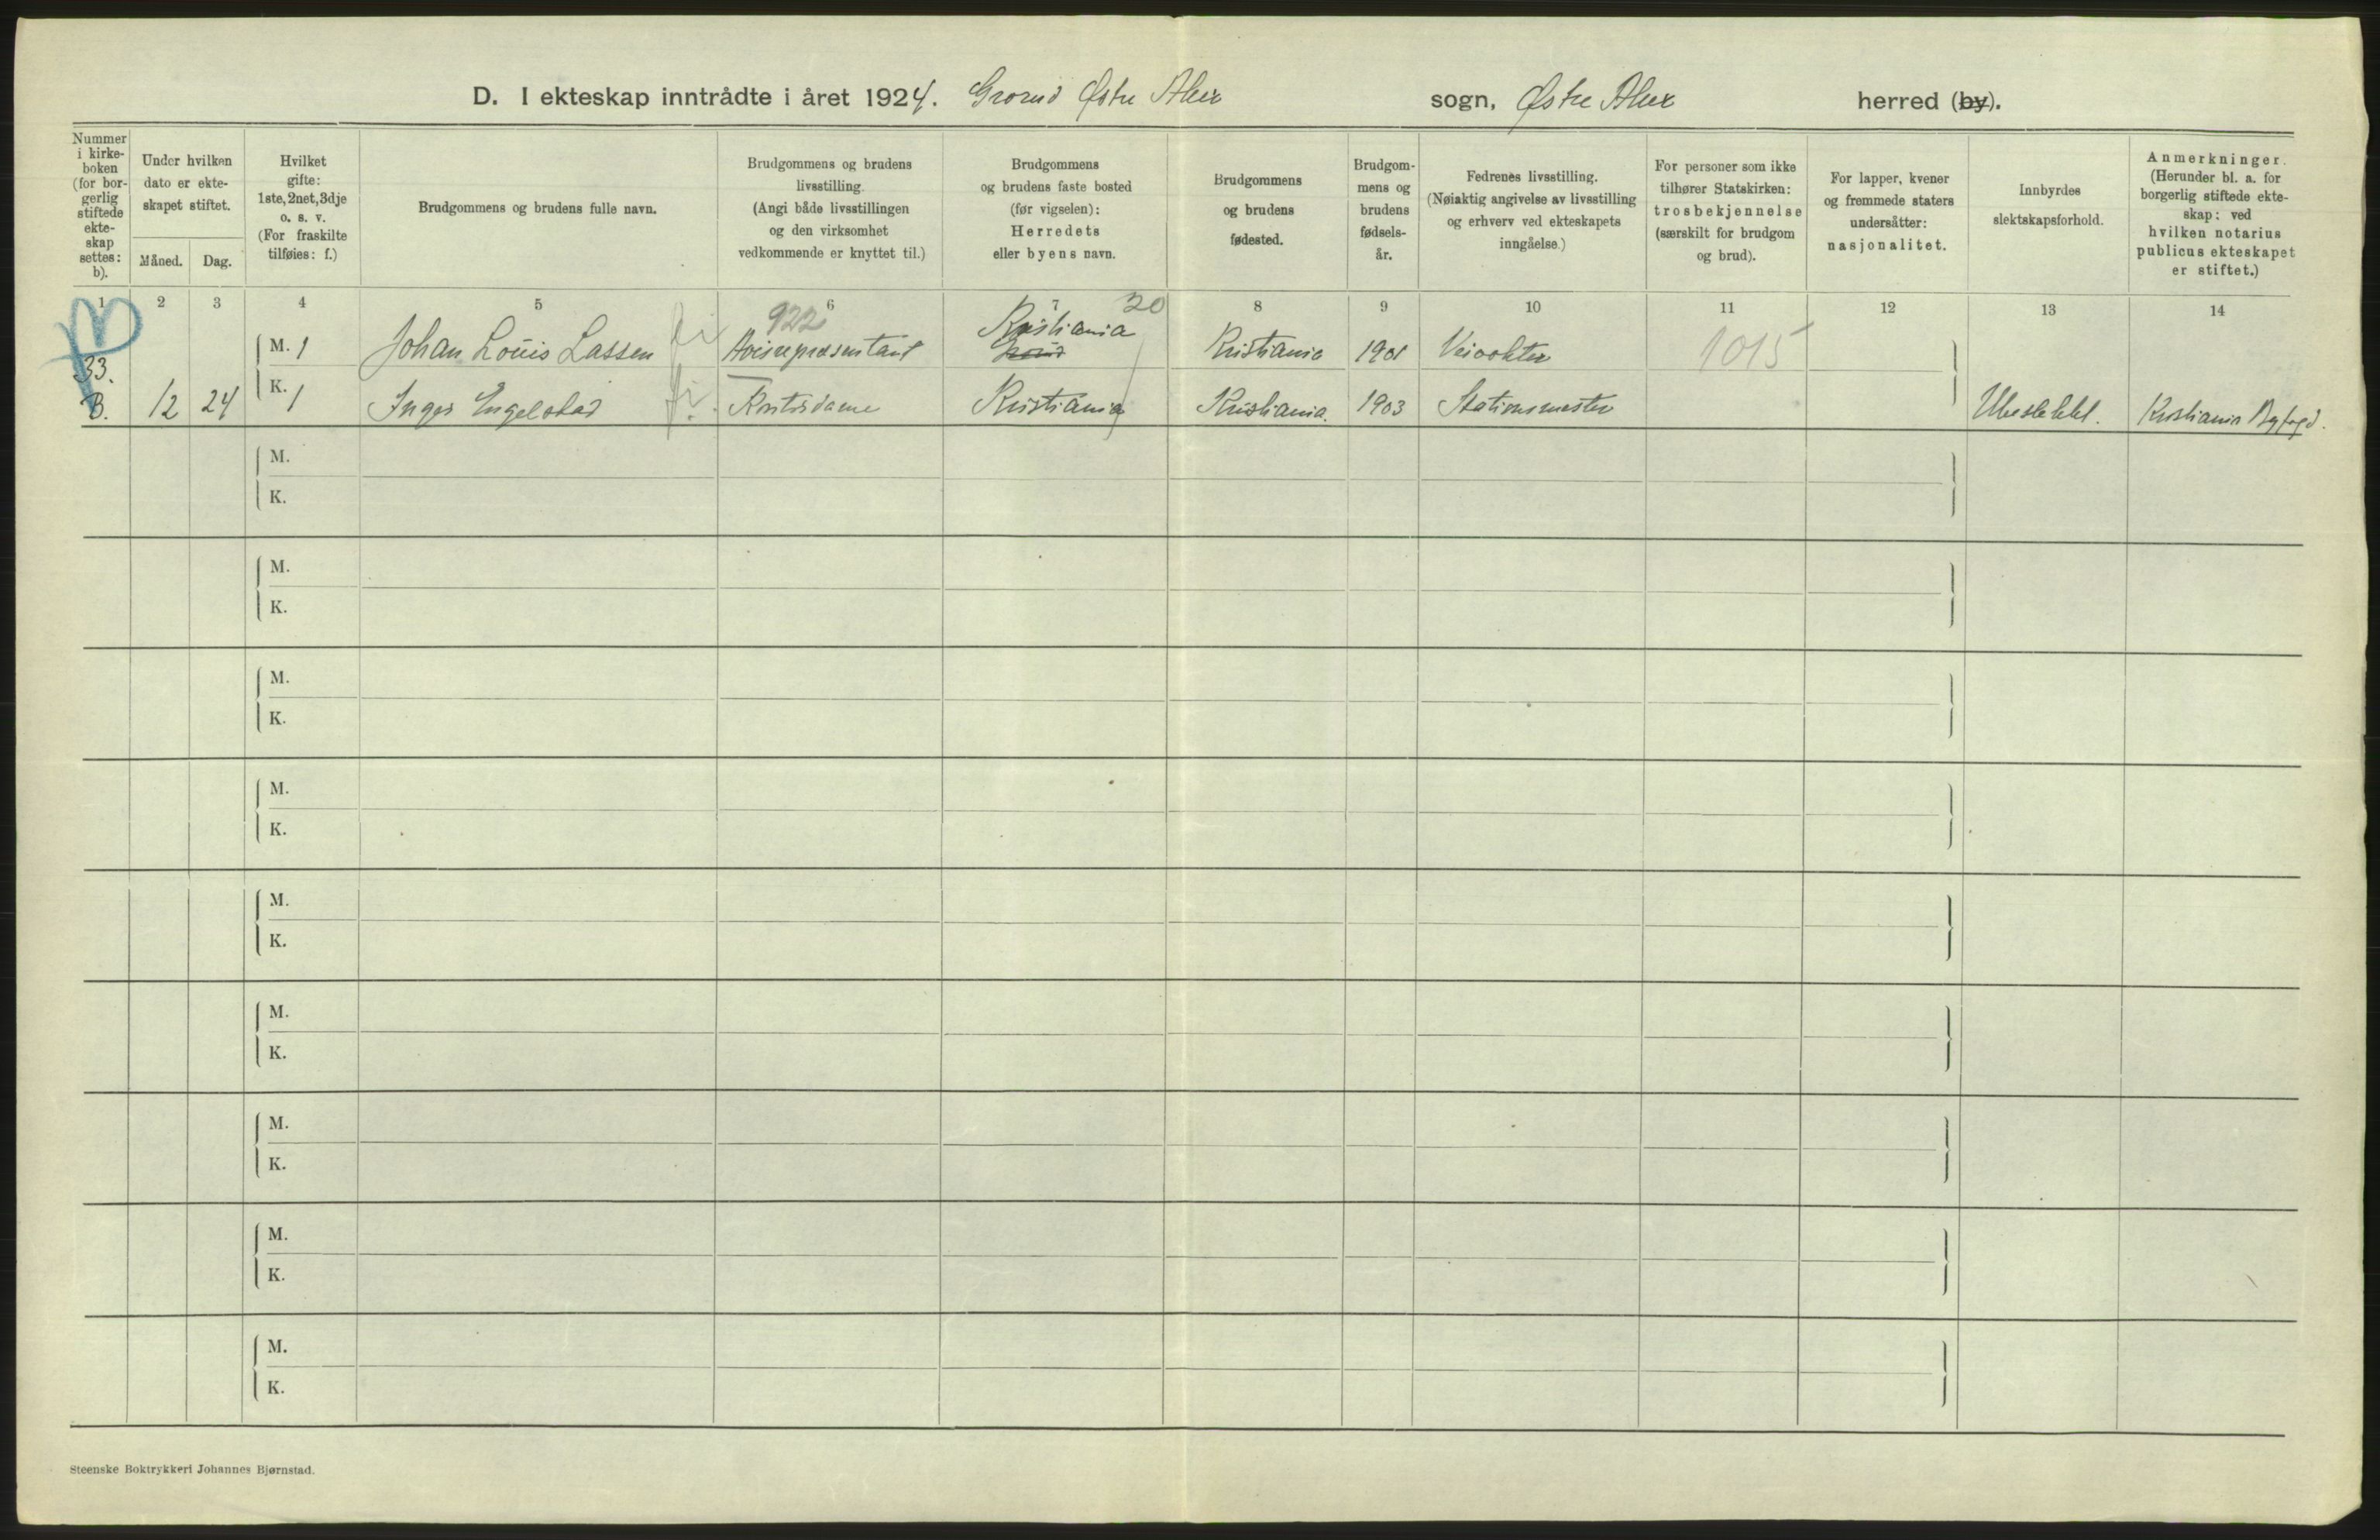 D. I ekteskap inntrådte i året 1924. Grorud Østre Aker sogn, Østre Aker herred (by).
Nummer
i kirke-
boken
(for bor-
gerlig
stiftede
ekte-
skap
settes:
b).
Under hvilken
dato er ekte-
skapet stiftet.
Måned. Dag.
Hvilket
gifte:
1ste, 2net, 3dje
o. s. v.
(For fraskilte
tilføies: f.)
Brudgommens og brudens fulle navn.
Brudgommens og brudens
livsstilling.
(Angi både livsstillingen
og den virksomhet
vedkommende er knyttet til.)
Brudgommens
og brudens faste bosted
(før vigselen):
Herredets
eller byens navn.
Brudgommens
og brudens
fødested.
Brudgom-
mens og
brudens
fødsels-
år.
Fedrenes livsstilling.
(Nøiaktig angivelse av livsstilling
og erhverv ved ekteskapets
inngåelse.)
For personer som ikke
tilhører Statskirken:
trosbekjennelse
(særskilt for brudgom
og brud).
For lapper, kvener
og fremmede staters
undersåtter:
nasjonalitet.
Innbyrdes
slektskapsforhold.
Anmerkninger.
(Herunder bl. a. for
borgerlig stiftede ekte-
skap: ved
hvilken notarius
publicus ekteskapet
er stiftet.)
1 2 3 4 5 6 7 8 9 10 11 12 13 14
922 20
Kristiania
33. M. 1 Johan Louis Lassen Avisrepræsentant Grorud Kristiania 1901 Veivokter 1015
B. 12 24 K. 1 Inger Engelstad Kontordame Kristiania Kristiania. 1903 Stationsmester Ubeslektet. Kristiania Byfogd.
M.
K.
M.
K.
M.
K.
M.
K.
M.
K.
M.
K.
M.
K.
M.
K.
M.
K.
Steenske Boktrykkeri Johannes Bjørnstad.